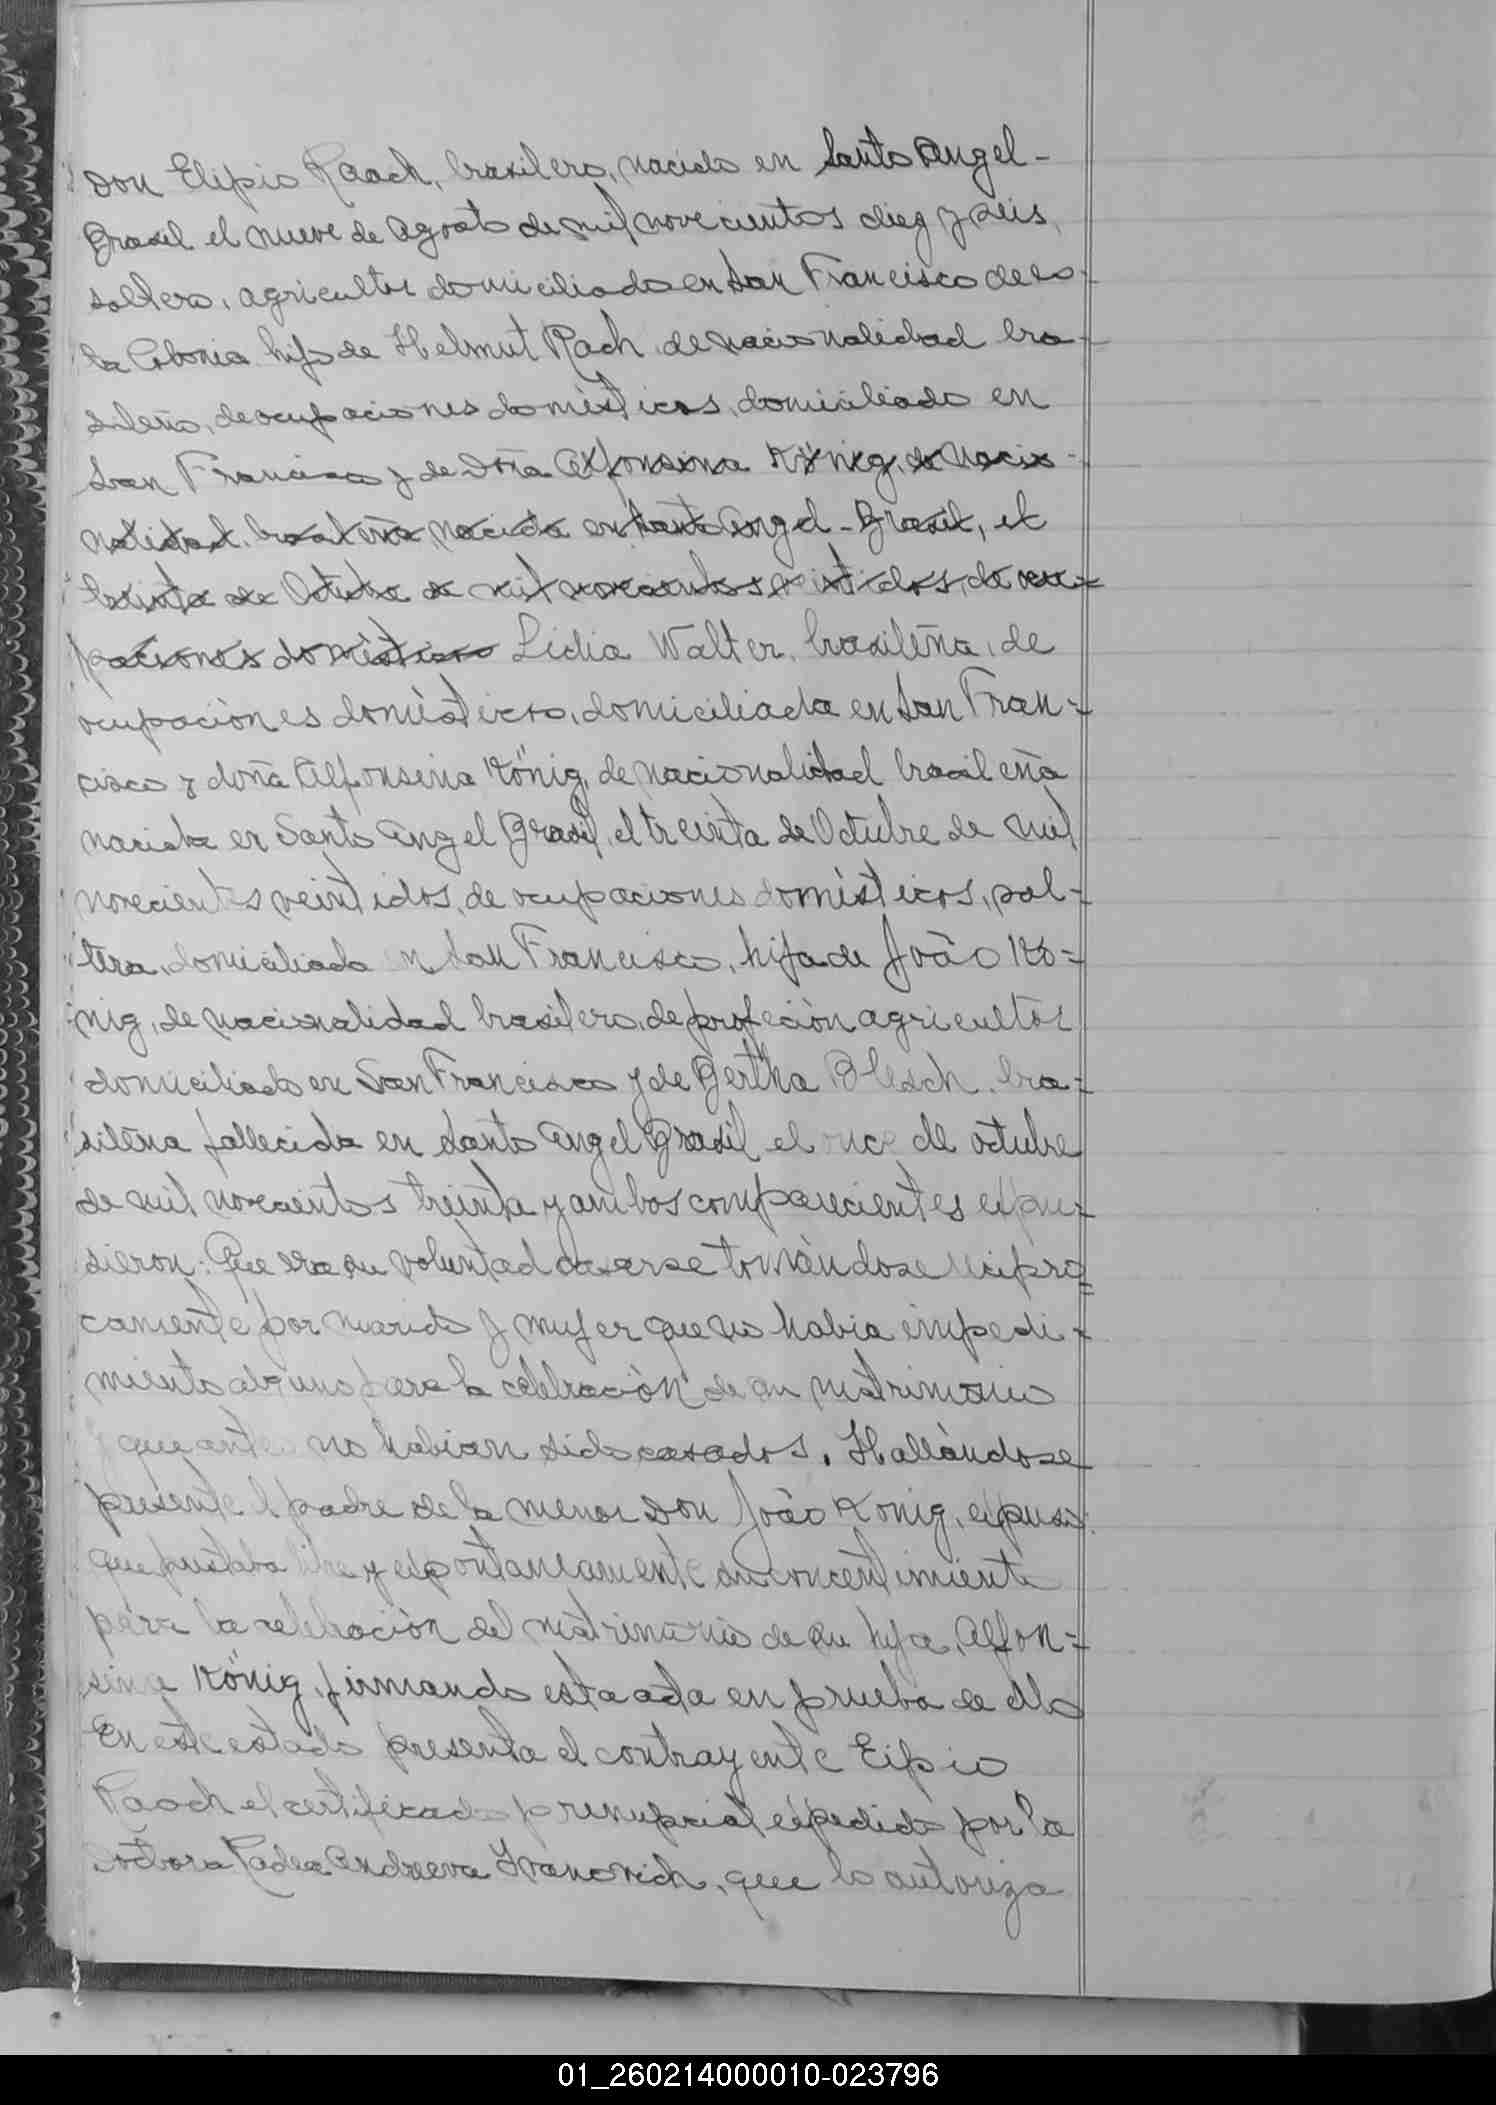 Don Elipio Raach, brasilero, nacido en Santo Angel -
Brasil el nueve de Agosto de mil novecientos diez y seis,
soltero, agricultor domiciliado en San Francisco de so-
la Colonia hijo de Helmut Rach de nacionalidad bra-
sileño, de ocupaciones domésticas, domiciliado en
San Francisco y de Doña Alfonsina König, de nacio-
nalidad brasileña, nacida en Santo Angel - Brasil, el
treinta de Octubre de mil novecientos veintidos, de ocu-
paciones domésticas Lidia Walter, brasileña, de
ocupaciònes domèsticas, domiciliada en San Fran-
cisco y doña Alfonsina König, de nacionalidad brasileña
nacida en Santo Angel Brasil, el treinta de Octubre de mil
novecientos veintidos, de ocupaciones domèsticas, sol-
tera, domiciliada en San Francisco, hija de João Kö=
nig, de nacionalidad brasilero, de profeciòn agricultor
domiciliado en San Francisco y de Bertha Blesch, bra=
sileña fallecida en Santo Angel Brasil el once de octubre
de mil novecientos treinta y ambos comparecientes expu-
sieron: Que era su voluntad casarse tomàndose recipro=
camente por marido y mujer que no habia impedi-
miento alguno para la celebraciòn de su matrimonio
y que antes no habian sido casados. Hallàndose
presente el padre de la menor Don João Konig, expuso:
que prestaba libre y espontaneamente su concentimiento
para la celebraciòn del matrimonio de su hija, Alfon=
sina König, firmando esta acta en prueba de ello
En este estado presenta el contrayente Eipio
Raach el certificado prenupcial expedido por la
Doctora Nadea Andreeva Ivanovich, que lo autoriza
01_260214000010-023796